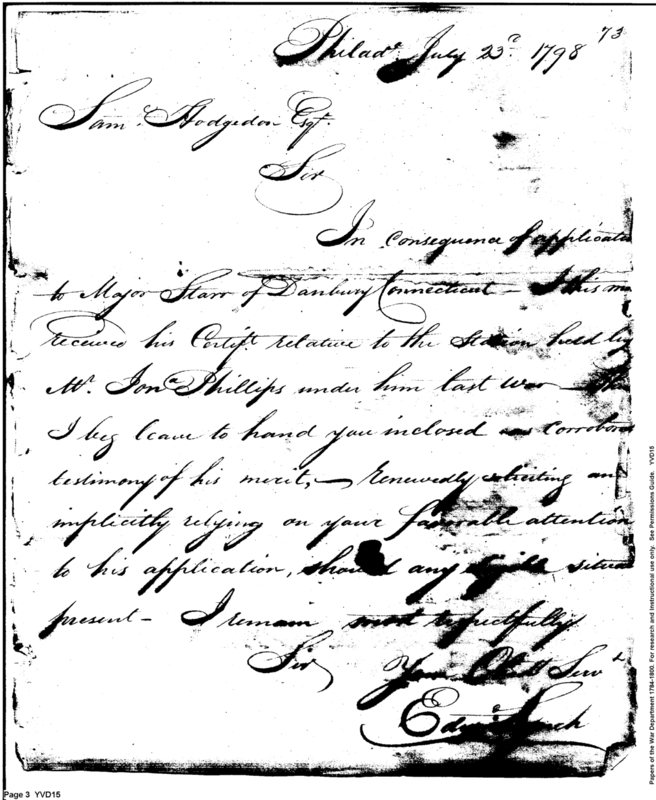 73
Philada. July 23d. 1798
Saml. Hodgedon Esqr.
Sir
In consequence of applicati
to Major Starr of Danbury Connecticut – I this m
received his Certift. relative to the Station held by
Mr. Jona. Phillips under him last war –
I beg leave to hand you inclosed as corrobora
testimony of his merit, – renewedly soliciting and
implicitly relying on your favorable attention
to his application, should any eligible situa
present – I remain most respectfully
Sir Your Obdt Servt
Edwd.
Page 3 YVD15
Papers of the War Department 1784-1800. For research and instructional use only. See Permissions Guide. YVD15